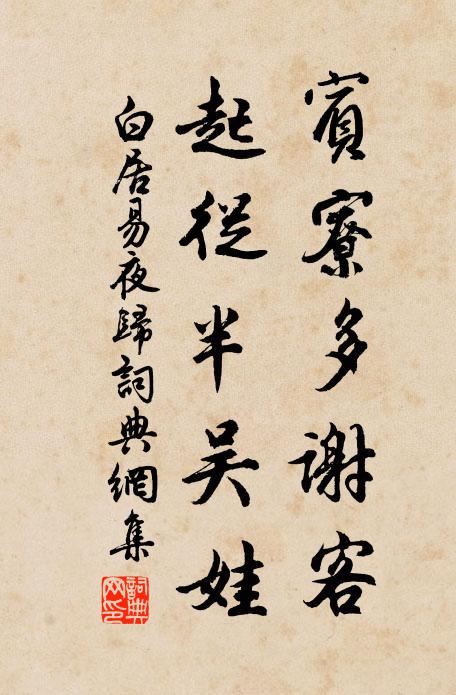 賓寮多謝客
起從半吳娃
白居易夜歸詞典網集
詞典网印